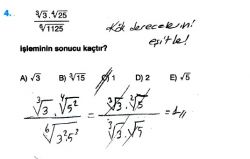 4.
∛3 . ∜25
⁶√1125
Kök derecelerini
eşitle!
işleminin sonucu kaçtır?
A) √3 B) ∛15 C) 1 D) 2 E) √5
∛3 . ∜5² / ⁶√3².5³ = ∛3 . ²√5 / ∛3 . √5 = 1 //